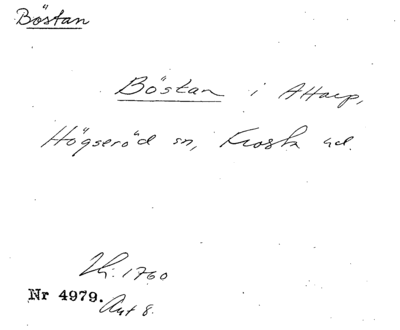 Böstan
Böstan i Attarp,
Högseröd sn, Frosta hd.
1760
Nr 4979.
Ant 8.